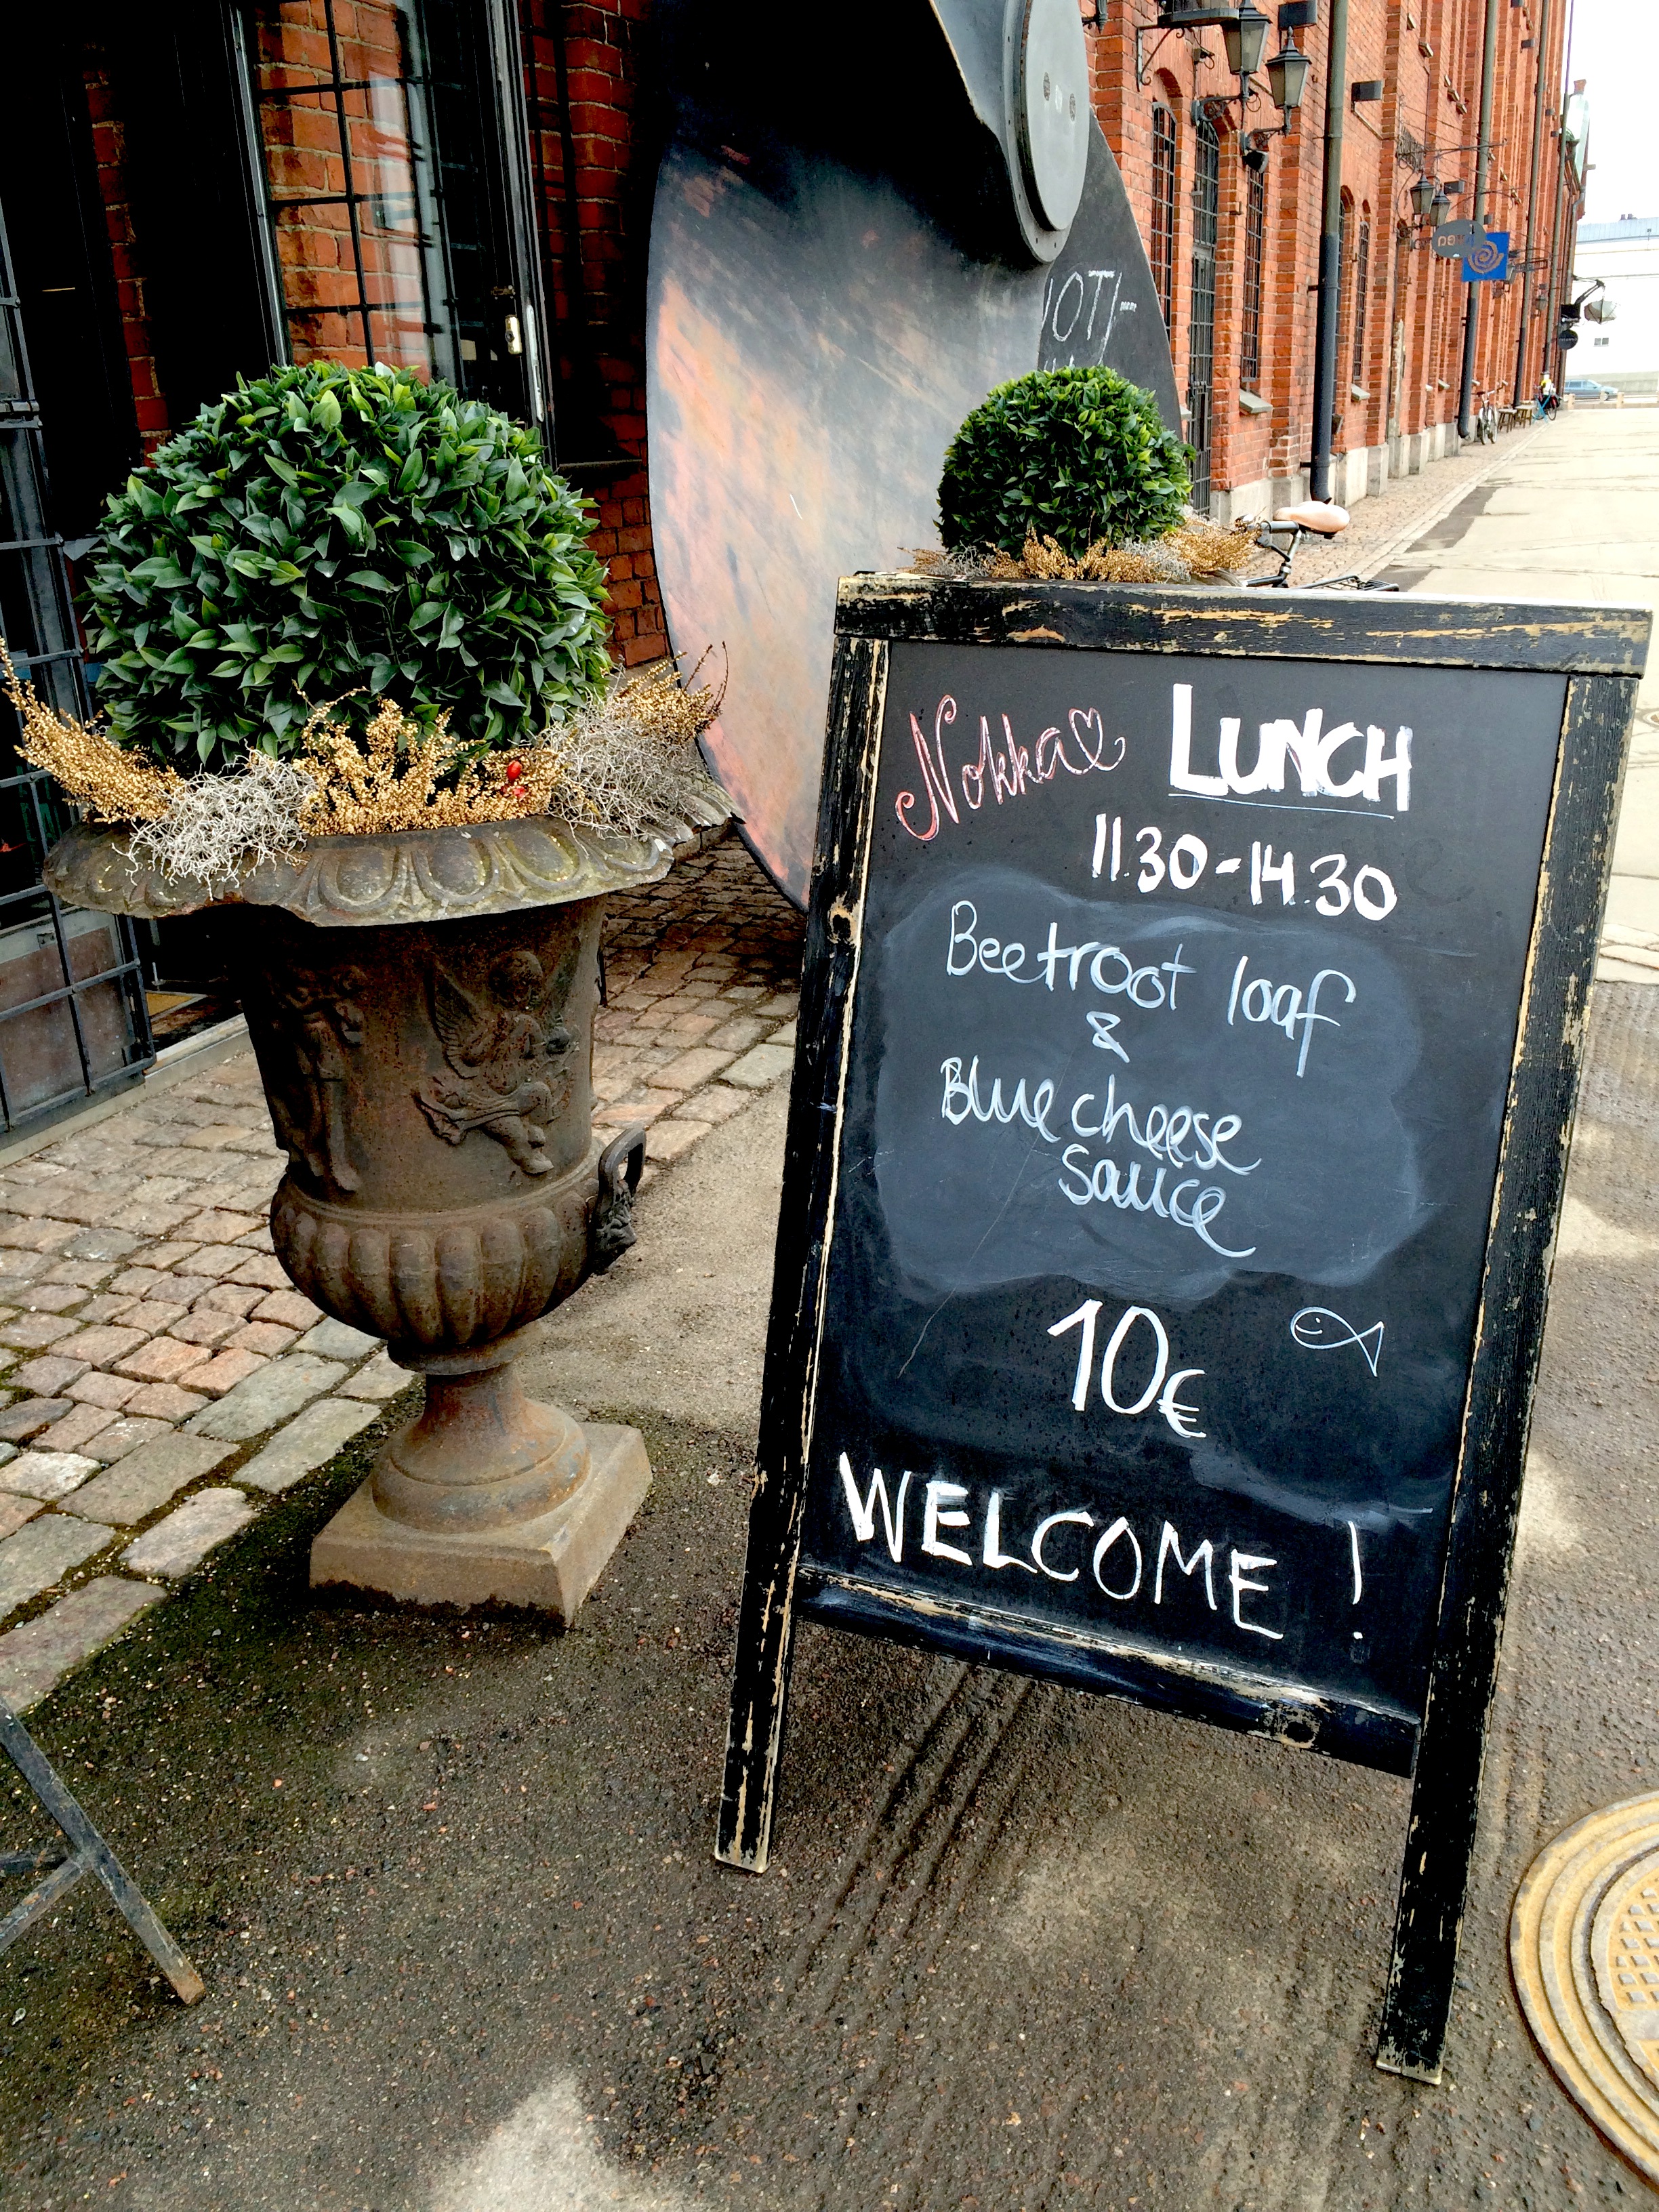 Nokka LUNCH
11.30-14.30
Beetroot loaf
&
Blue cheese
sauce
10€
WELCOME !